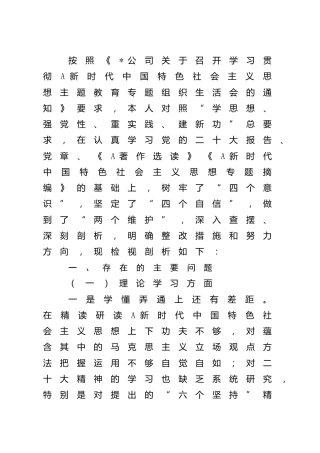 按照《*公司关于召开学习贯
彻A新时代中国特色社会主义思
想主题教育专题组织生活会的通
知》要求，本人对照“学思想、
强党性、重实践、建新功”总要
求，在认真学习党的二十大报告、
党章、《A著作选读》《A新时代
中国特色社会主义思想专题摘
编》的基础上，树牢了“四个意
识”，坚定了“四个自信”，做
到了“两个维护”，深入查摆、
深刻剖析，明确整改措施和努力
方向，现检视剖析如下：
一、存在的主要问题
（一）理论学习方面
一是学懂弄通上还有差距。
在精读研读A新时代中国特色社
会主义思想上下功夫不够，对蕴
含其中的马克思主义立场观点方
法把握运用不够自觉自如；对二
十大精神的学习也缺乏系统研究，
特别是对提出的“六个坚持”精